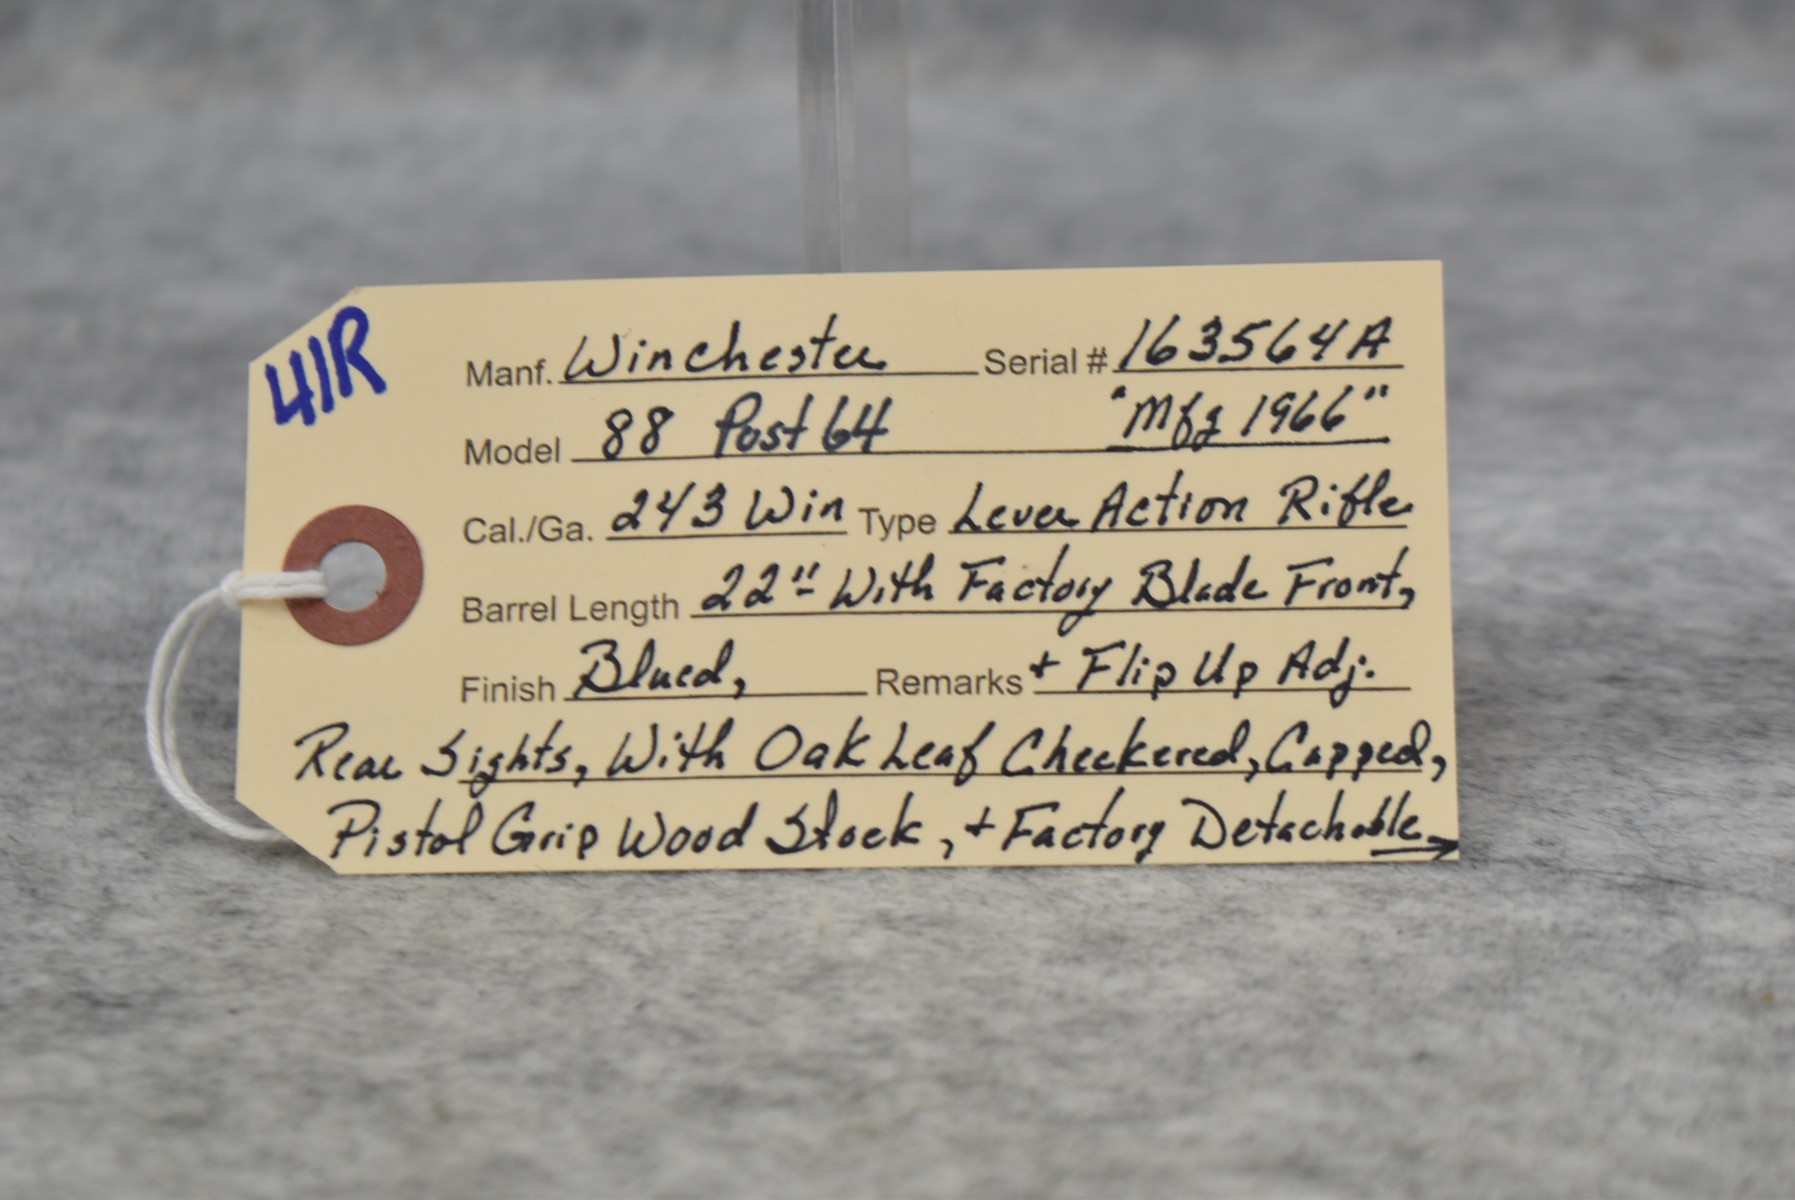 41R
Manf. Winchester Serial # 163564A
Model 88 Post 64 "Mfg 1966"
Cal./Ga. 243 Win Type Lever Action Rifle
Barrel Length 22" With Factory Blade Front,
Finish Blued, Remarks + Flip Up Adj.
Rear Sights, With Oak Leaf Checkered, Capped,
Pistol Grip Wood Stock, + Factory Detachable →